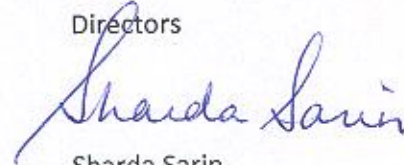 Directors
Sharda Sarin
Sharda Sarin